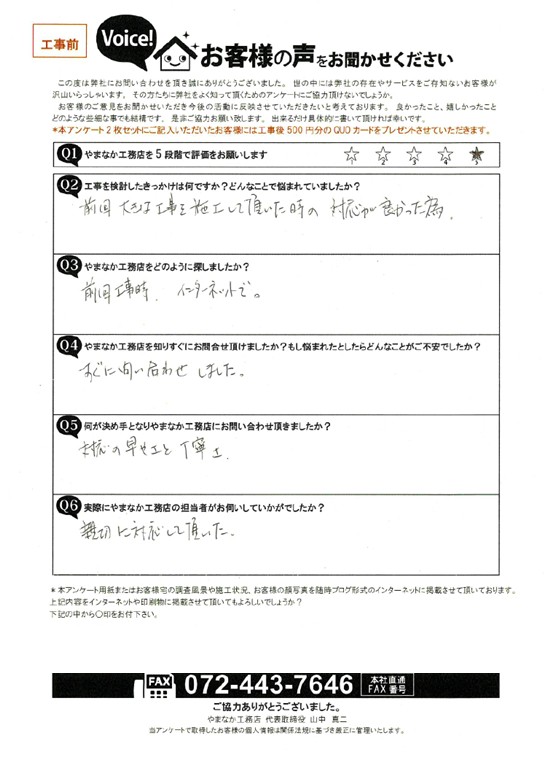 工事前
Voice!
お客様の声をお聞かせください
この度は弊社にお問い合わせを頂き誠にありがとうございました。世の中には弊社の存在やサービスをご存知ないお客様が
沢山いらっしゃいます。その方たちに弊社をよく知って頂くためのアンケートにご協力頂けないでしょうか。
お客様のご意見をお聞かせいただき今後の活動に反映させていただきたいと考えております。良かったこと、嬉しかったこと
どのような些細な事でも結構です。是非ご協力お願い致します。出来るだけ具体的に書いて頂ければ幸いです。
*本アンケート2枚セットにご記入いただいたお客様には工事後500円分のQUOカードをプレゼントさせていただきます。
Q1 やまなか工務店を5段階で評価をお願いします
☆ ☆ ☆ ☆ ★
1 2 3 4 5
Q2 工事を検討したきっかけは何ですか?どんなことで悩まれていましたか?
前回大きな工事を施工して頂いた時の対応が良かった為。
Q3 やまなか工務店をどのように探しましたか?
前回工事時、インターネットで。
Q4 やまなか工務店を知りすぐにお問合せ頂けましたか?もし悩まれたとしたらどんなことがご不安でしたか?
すぐに問い合わせしました。
Q5 何が決め手となりやまなか工務店にお問い合わせ頂きましたか?
対応の早さと丁寧さ。
Q6 実際にやまなか工務店の担当者がお伺いしていかがでしたか?
親切に対応して頂いた。
*本アンケート用紙またはお客様宅の調査風景や施工状況、お客様の顔写真を随時ブログ形式のインターネットに掲載させて頂いております。
上記内容をインターネットや印刷物に掲載させて頂いてもよろしいでしょうか?
下記の中から○印をお付下さい。
FAX 072-443-7646 本社直通
FAX番号
ご協力ありがとうございました。
やまなか工務店 代表取締役 山中 真二
当アンケートで取得したお客様の個人情報は関係法規に基づき厳正に管理いたします。